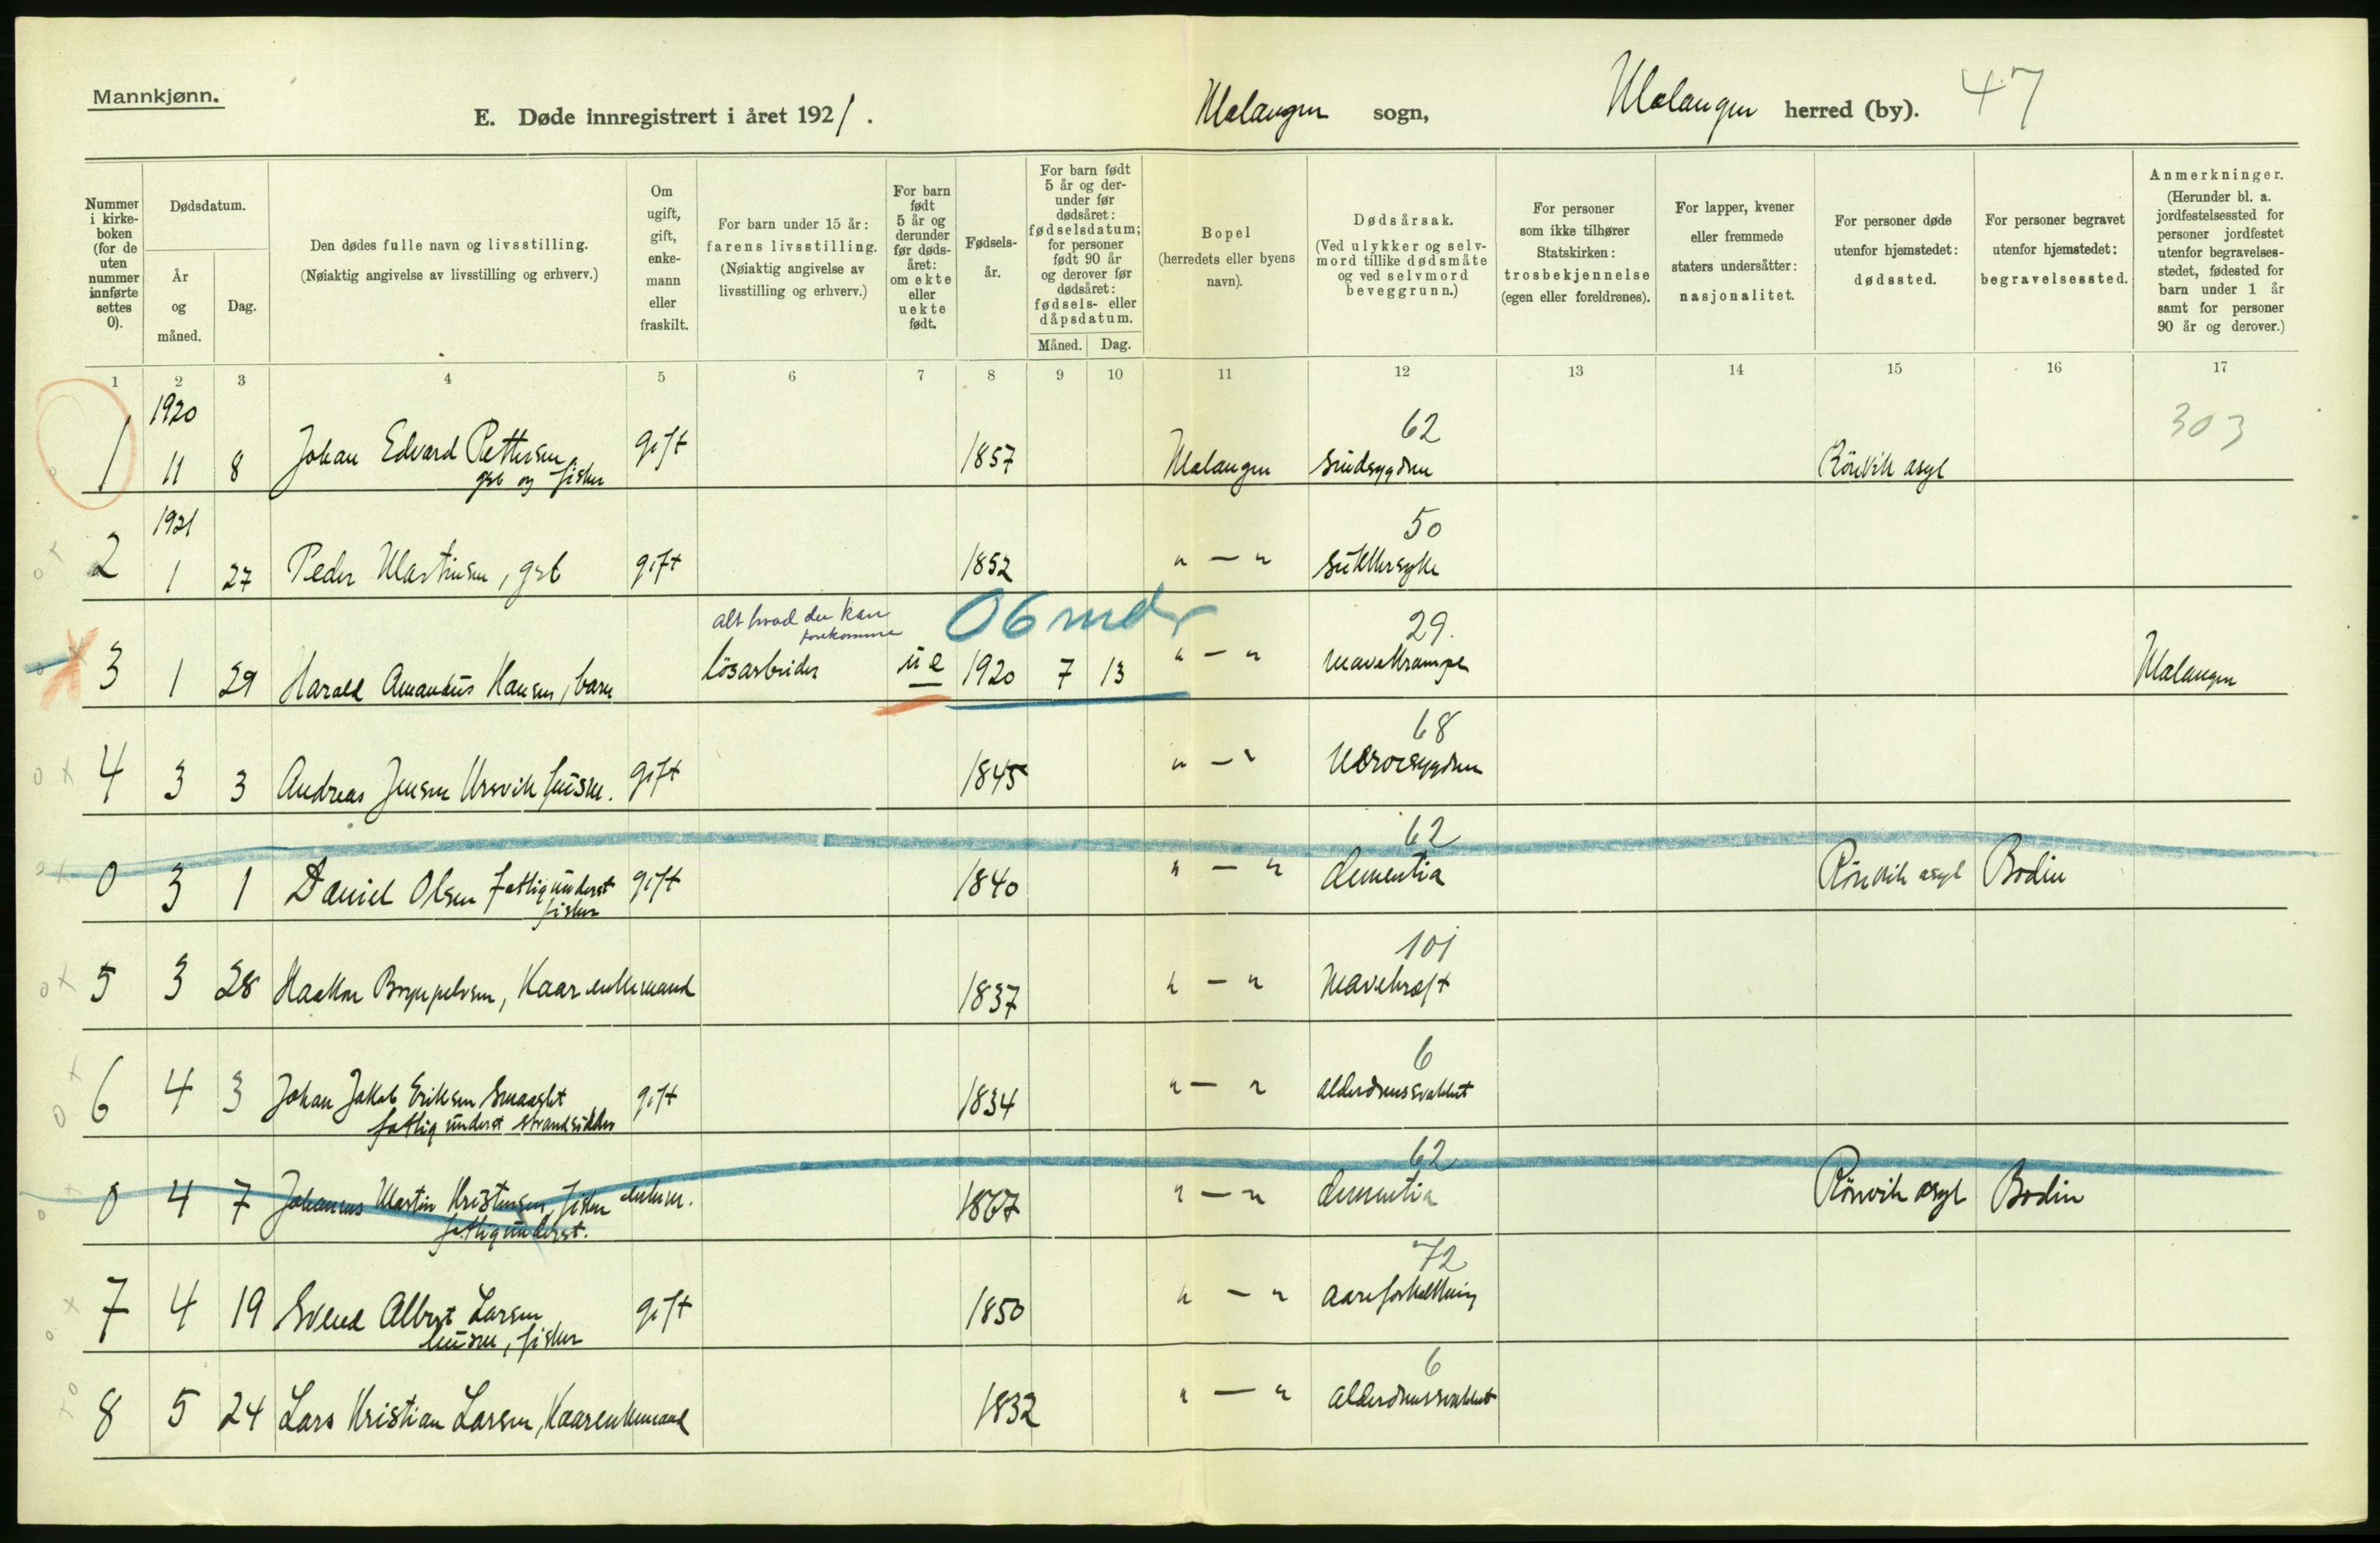 Mannkjønn.
E. Døde innregistrert i året 1921. Malangen sogn, Malangen herred (by). 47
Nummer i kirkeboken (for de uten nummer innførte settes 0).
Dødsdatum.
År og måned.
Dag.
Den dødes fulle navn og livsstilling.
(Nøiaktig angivelse av livsstilling og erhverv.)
Om ugift, gift, enkemann eller fraskilt.
For barn under 15 år: farens livsstilling.
(Nøiaktig angivelse av livsstilling og erhverv.)
For barn født 5 år og derunder før dødsåret: om ekte eller uekte født.
Fødselsår.
For barn født 5 år og derunder før dødsåret: fødselsdatum; for personer født 90 år og derover før dødsåret: fødsels- eller dåpsdatum.
Måned. Dag.
Bopel
(herredets eller byens navn).
Dødsårsak.
(Ved ulykker og selvmord tillike dødsmåte og ved selvmord beveggrunn.)
For personer som ikke tilhører Statskirken: trosbekjennelse (egen eller foreldrenes).
For lapper, kvener eller fremmede staters undersåtter: nasjonalitet.
For personer døde utenfor hjemstedet: dødssted.
For personer begravet utenfor hjemstedet: begravelsessted.
Anmerkninger.
(Herunder bl. a. jordfestelsessted for personer jordfestet utenfor begravelsesstedet, fødested for barn under 1 år samt for personer 90 år og derover.)
1 2 3 4 5 6 7 8 9 10 11 12 13 14 15 16 17
1920 62 303
1 11 8 Johan Edvard Pettersen gift 1857 Malangen sindsygdom Rönvik asyl
gsb og fisker
1921 50
2 1 27 Peder Martinsen, gsb gift 1852 " — " sukkersyke
alt hvad der kan 06 mdr 29.
forekomme
3 1 29 Harald Amandus Hansen, barn lösarbeider u e 1920 7 13 " — " mavekrampe Malangen
68
4 3 3 Andreas Jensen Ursvik husm. gift 1845 " — " Nervesygdom
62
0 3 1 Daniel Olsen fattigunderst gift 1840 " — " dementia Rönvik asyl Bodin
fisker
101
5 3 28 Haakon Bryngelsen, Kaarenkemand 1837 " — " Mavekræft
6
6 4 3 Johan Jakob Eriksen gift 1834 " — " alderdomssvakhet
fattig underst strandsidder
62
0 4 7 Johannes Martin Kristensen, fisker enkem. 1867 " — " dementia Rönvik asyl Bodin
fattigunderst.
72
7 4 19 Svend Albert Larsen gift 1850 " — " aareforkalkning
husm, fisker
6
8 5 24 Lars Kristian Larsen, Kaarenkemand 1832 " — " alderdomssvakhet